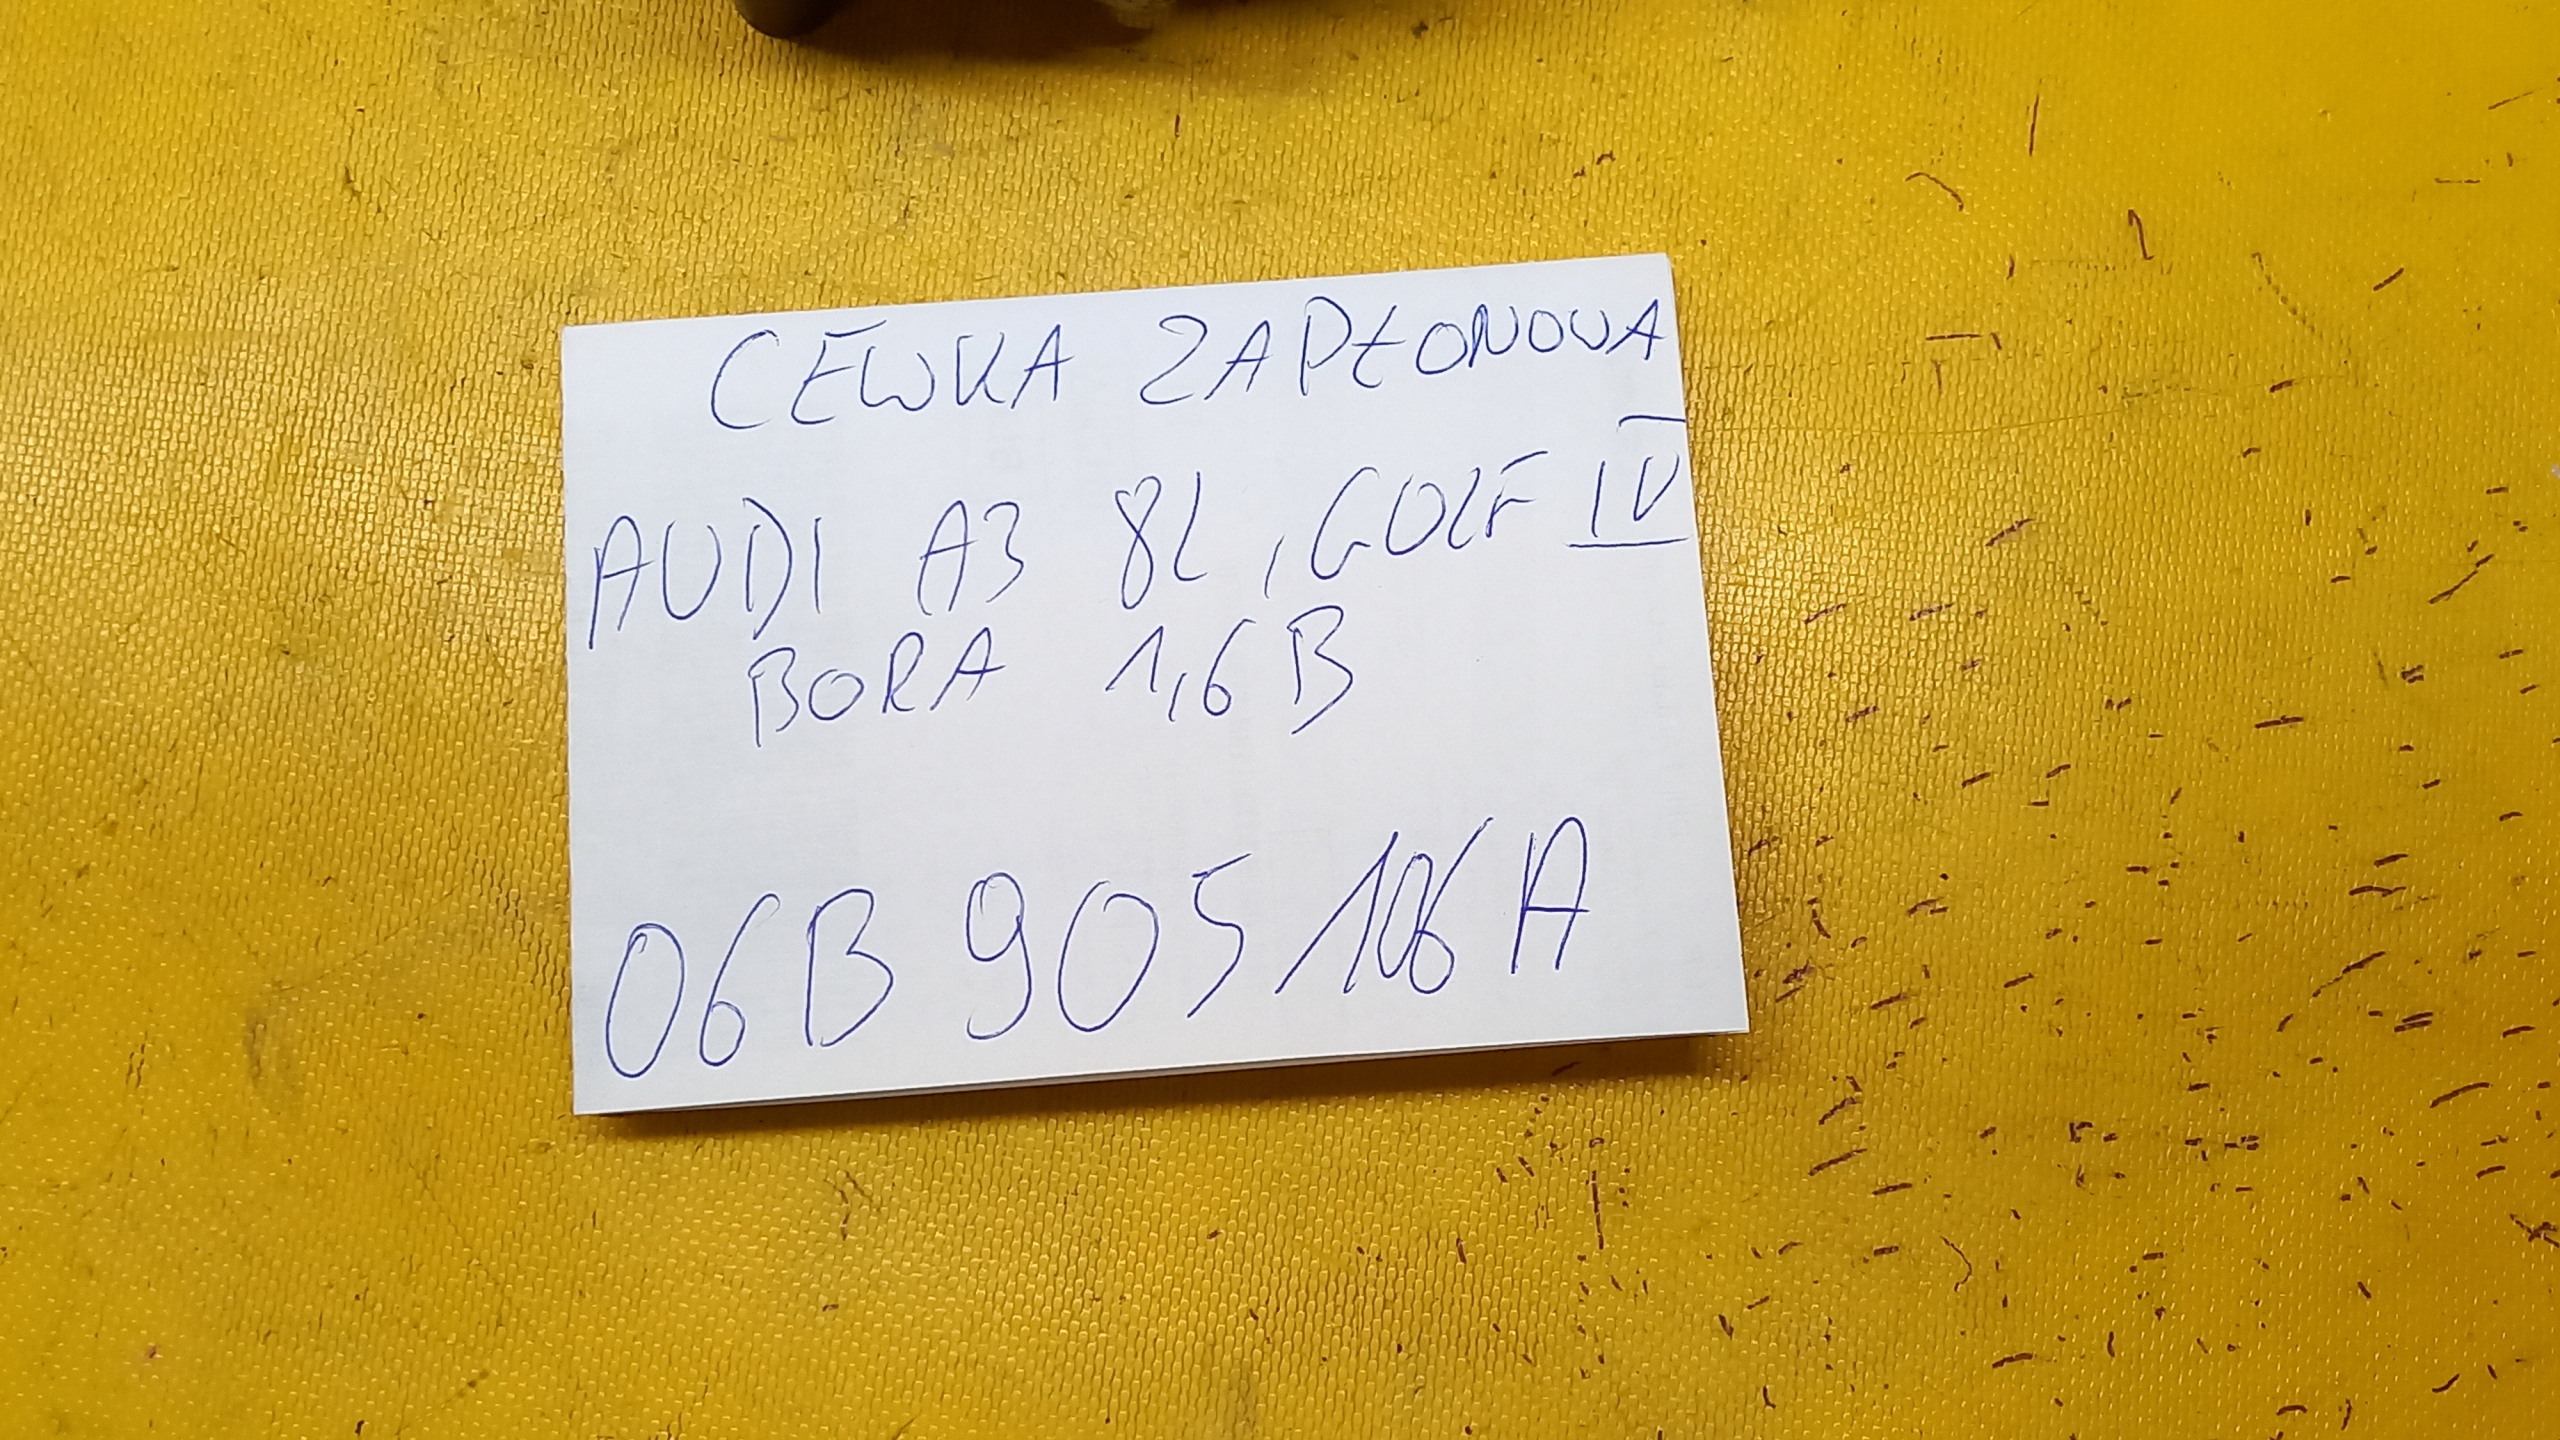 CEWKA ZAPŁONOWA
AUDI A3 8L, GOLF IV
BORA 1,6 B
06B 905 106 A